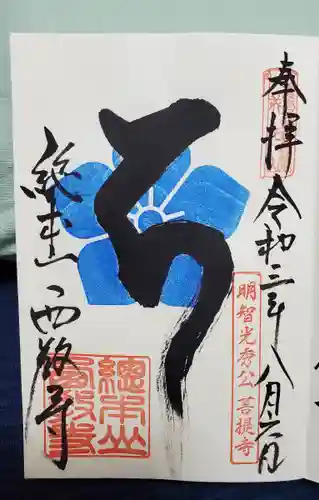 奉拝
令和三年八月六日
明智光秀公菩提寺
総本山
西教寺
總本山
西教寺